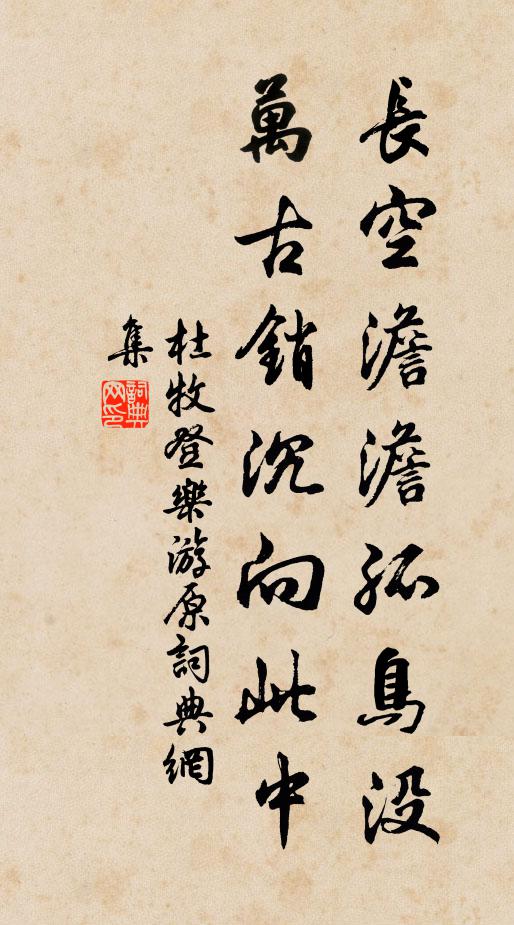 長空澹澹孤鳥没
萬古銷沉向此中
杜牧登樂游原詞典網
集
詞典
网印